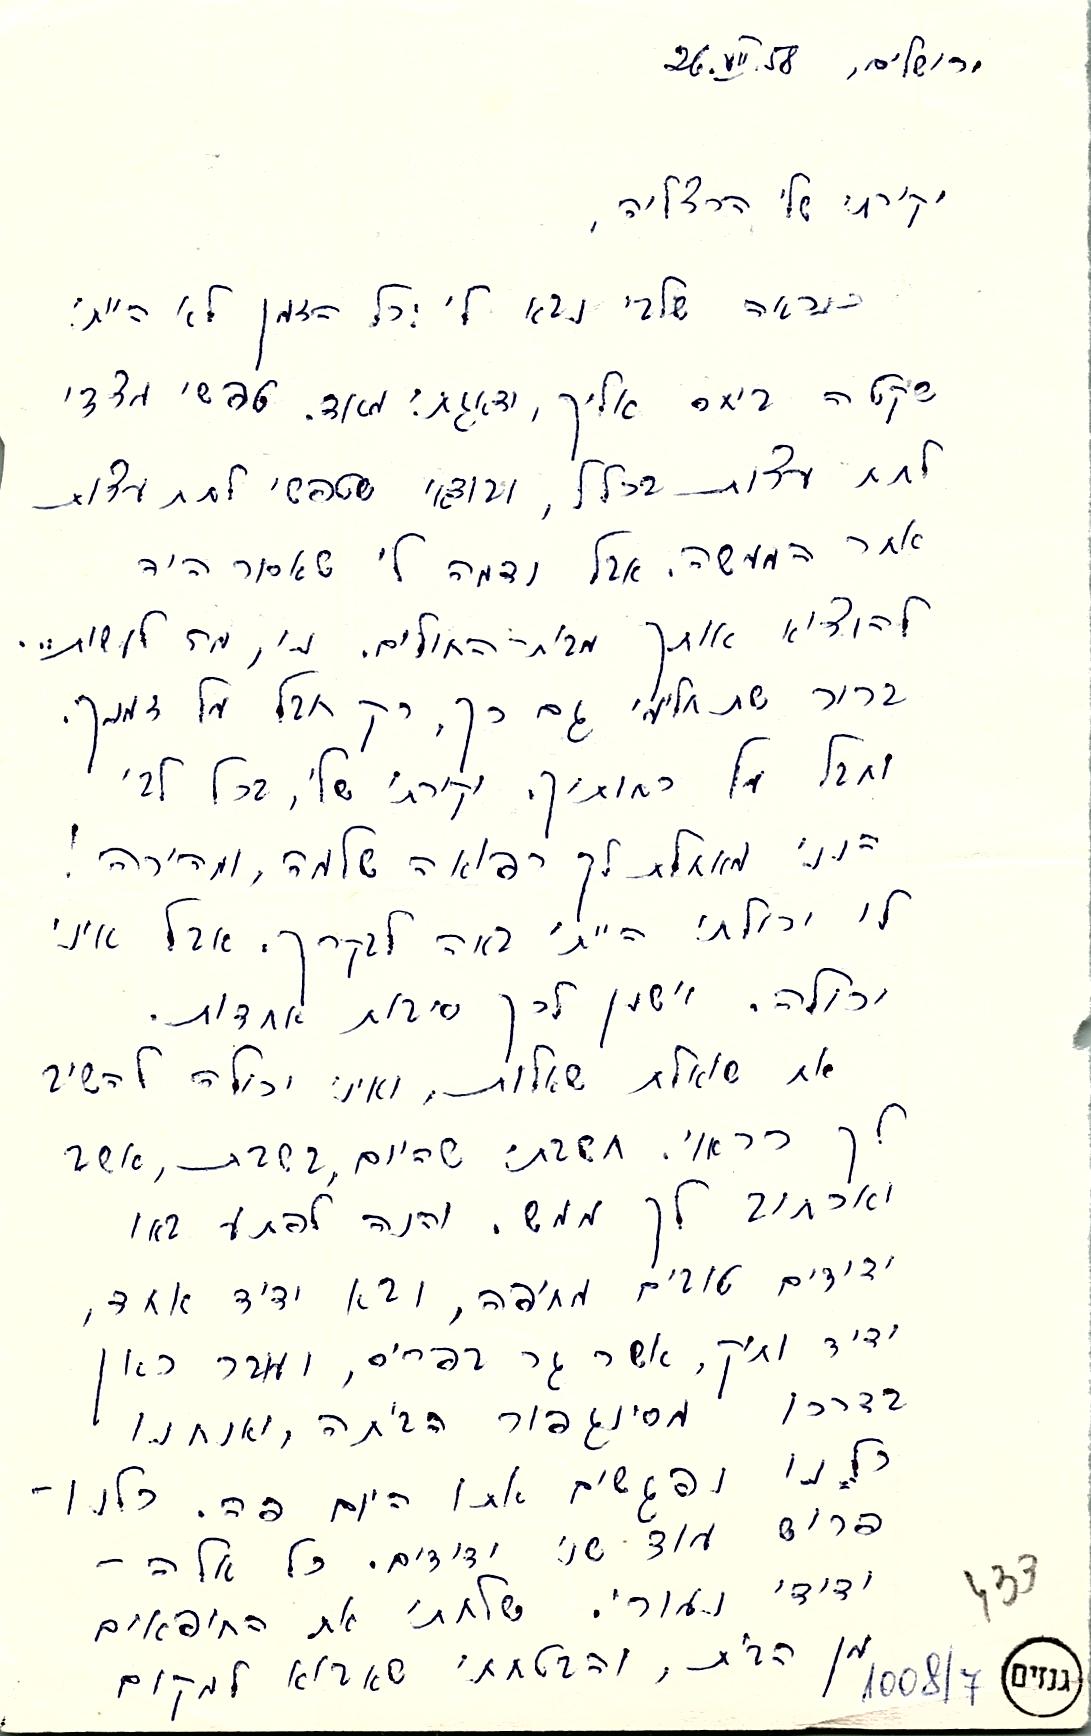 ירושלים, 26.VII.58
יקירתי שלי הרצליה,
כנראה שלבי נבא לי: כל הזמן לא הייתי
שקטה ביחס אליך, ודאגתי מאוד. טפשי מצדי
לתת עצות בכלל, ובודאי שטפשי לתת עצות
אחר המעשה. אבל נדמה לי שאסור היה
להוציא אותך מבית-החולים. ני, מה לעשות...
ברור שתחלימי גם כך, רק חבל על זמנך.
וחבל על כחותיך. יקירתי שלי, בכל לבי
הנני מאחלת לך רפואה שלמה, ומהירה!
לו יכולתי הייתי באה לבקרך. אבל איני
יכולה. וישנן לכך סיבות אחדות.
את שואלת שאלות, ואיני יכולה להשיב
לך כראוי. חשבתי שהיום, בשבת, אשב
ואכתוב לך ממש. והנה לפתע באו
ידידים טובים מחיפה, ובא ידיד אחד,
ידיד ותיק, אשר גר בפריס, ועבר כאן
בדרכו מסינגפור הביתה, ואנחנו
כלנו נפגשים אתו היום פה. כלנו -
פרוש עוד שני ידידים. כל אלה -
ידידי נעורי. שלחתי את החיפאים
מן הבית, והבטחתי שאבוא למקום
433
1008/7
גנזים